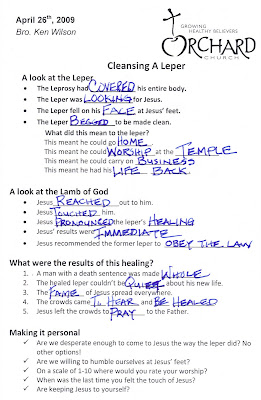 April 26th, 2009
Bro. Ken Wilson
GROWING
HEALTHY BELIEVERS
ORCHARD
CHURCH
Cleansing A Leper
A look at the Leper
• The Leprosy had COVERED his entire body.
• The Leper was LOOKING for Jesus.
• The Leper fell on his FACE at Jesus' feet.
• The Leper BEGGED to be made clean.
What did this mean to the leper?
This meant he could go HOME
This meant he could WORSHIP at the TEMPLE
This meant he could carry on BUSINESS
This meant he had his LIFE BACK.
A look at the Lamb of God
• Jesus REACHED out to him.
• Jesus TOUCHED him.
• Jesus PRONOUNCED the leper's HEALING
• Jesus' results were IMMEDIATE
• Jesus recommended the former leper to OBEY THE LAW
What were the results of this healing?
1. A man with a death sentence was made WHOLE
2. The healed leper couldn't be QUIET about his new life.
3. The FAME of Jesus spread everywhere.
4. The crowds came TO HEAR and BE HEALED
5. Jesus left the crowds to PRAY to the Father.
Making it personal
✓ Are we desperate enough to come to Jesus the way the leper did? No
other options!
✓ Are we willing to humble ourselves at Jesus' feet?
✓ On a scale of 1-10 where would you rate your worship?
✓ When was the last time you felt the touch of Jesus?
✓ Are keeping Jesus to yourself?